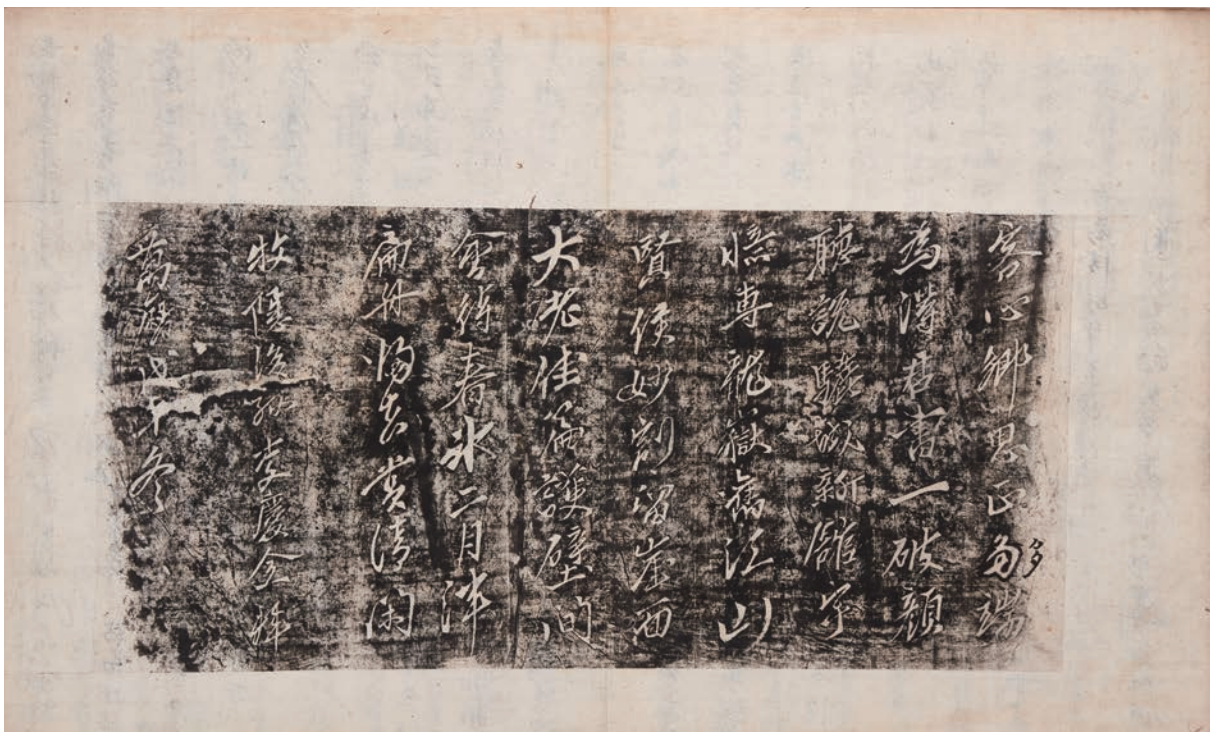 客心鄉思正多端
為得君書一破顏
聽說驪湫新館宇
憶專龍嶽舊江山
賢侯妙刻留崖面
大老佳篇護壁間
會待春氷二月泮
扁舟歸去賞清閑
牧隱後孫李慶全稿
萬曆戊午冬